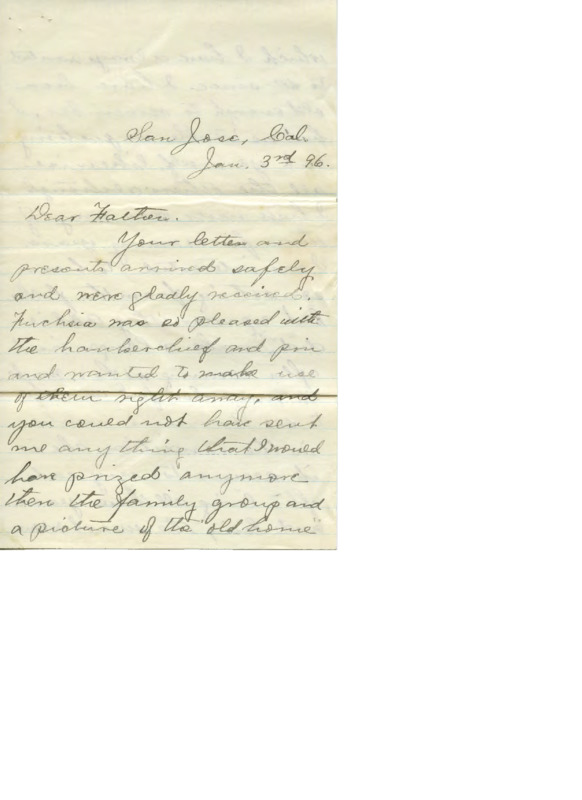 San Jose, Cal.
Jan. 3rd 96.
Dear Father.
Your letter and
presents arrived safely
and were gladly received.
Fuchsia was so pleased with
the hankerchief and pin
and wanted to make use
of them right away, and
you could not have sent
me any thing that I would
have prized anymore
then the family group and
a picture of the "old home"